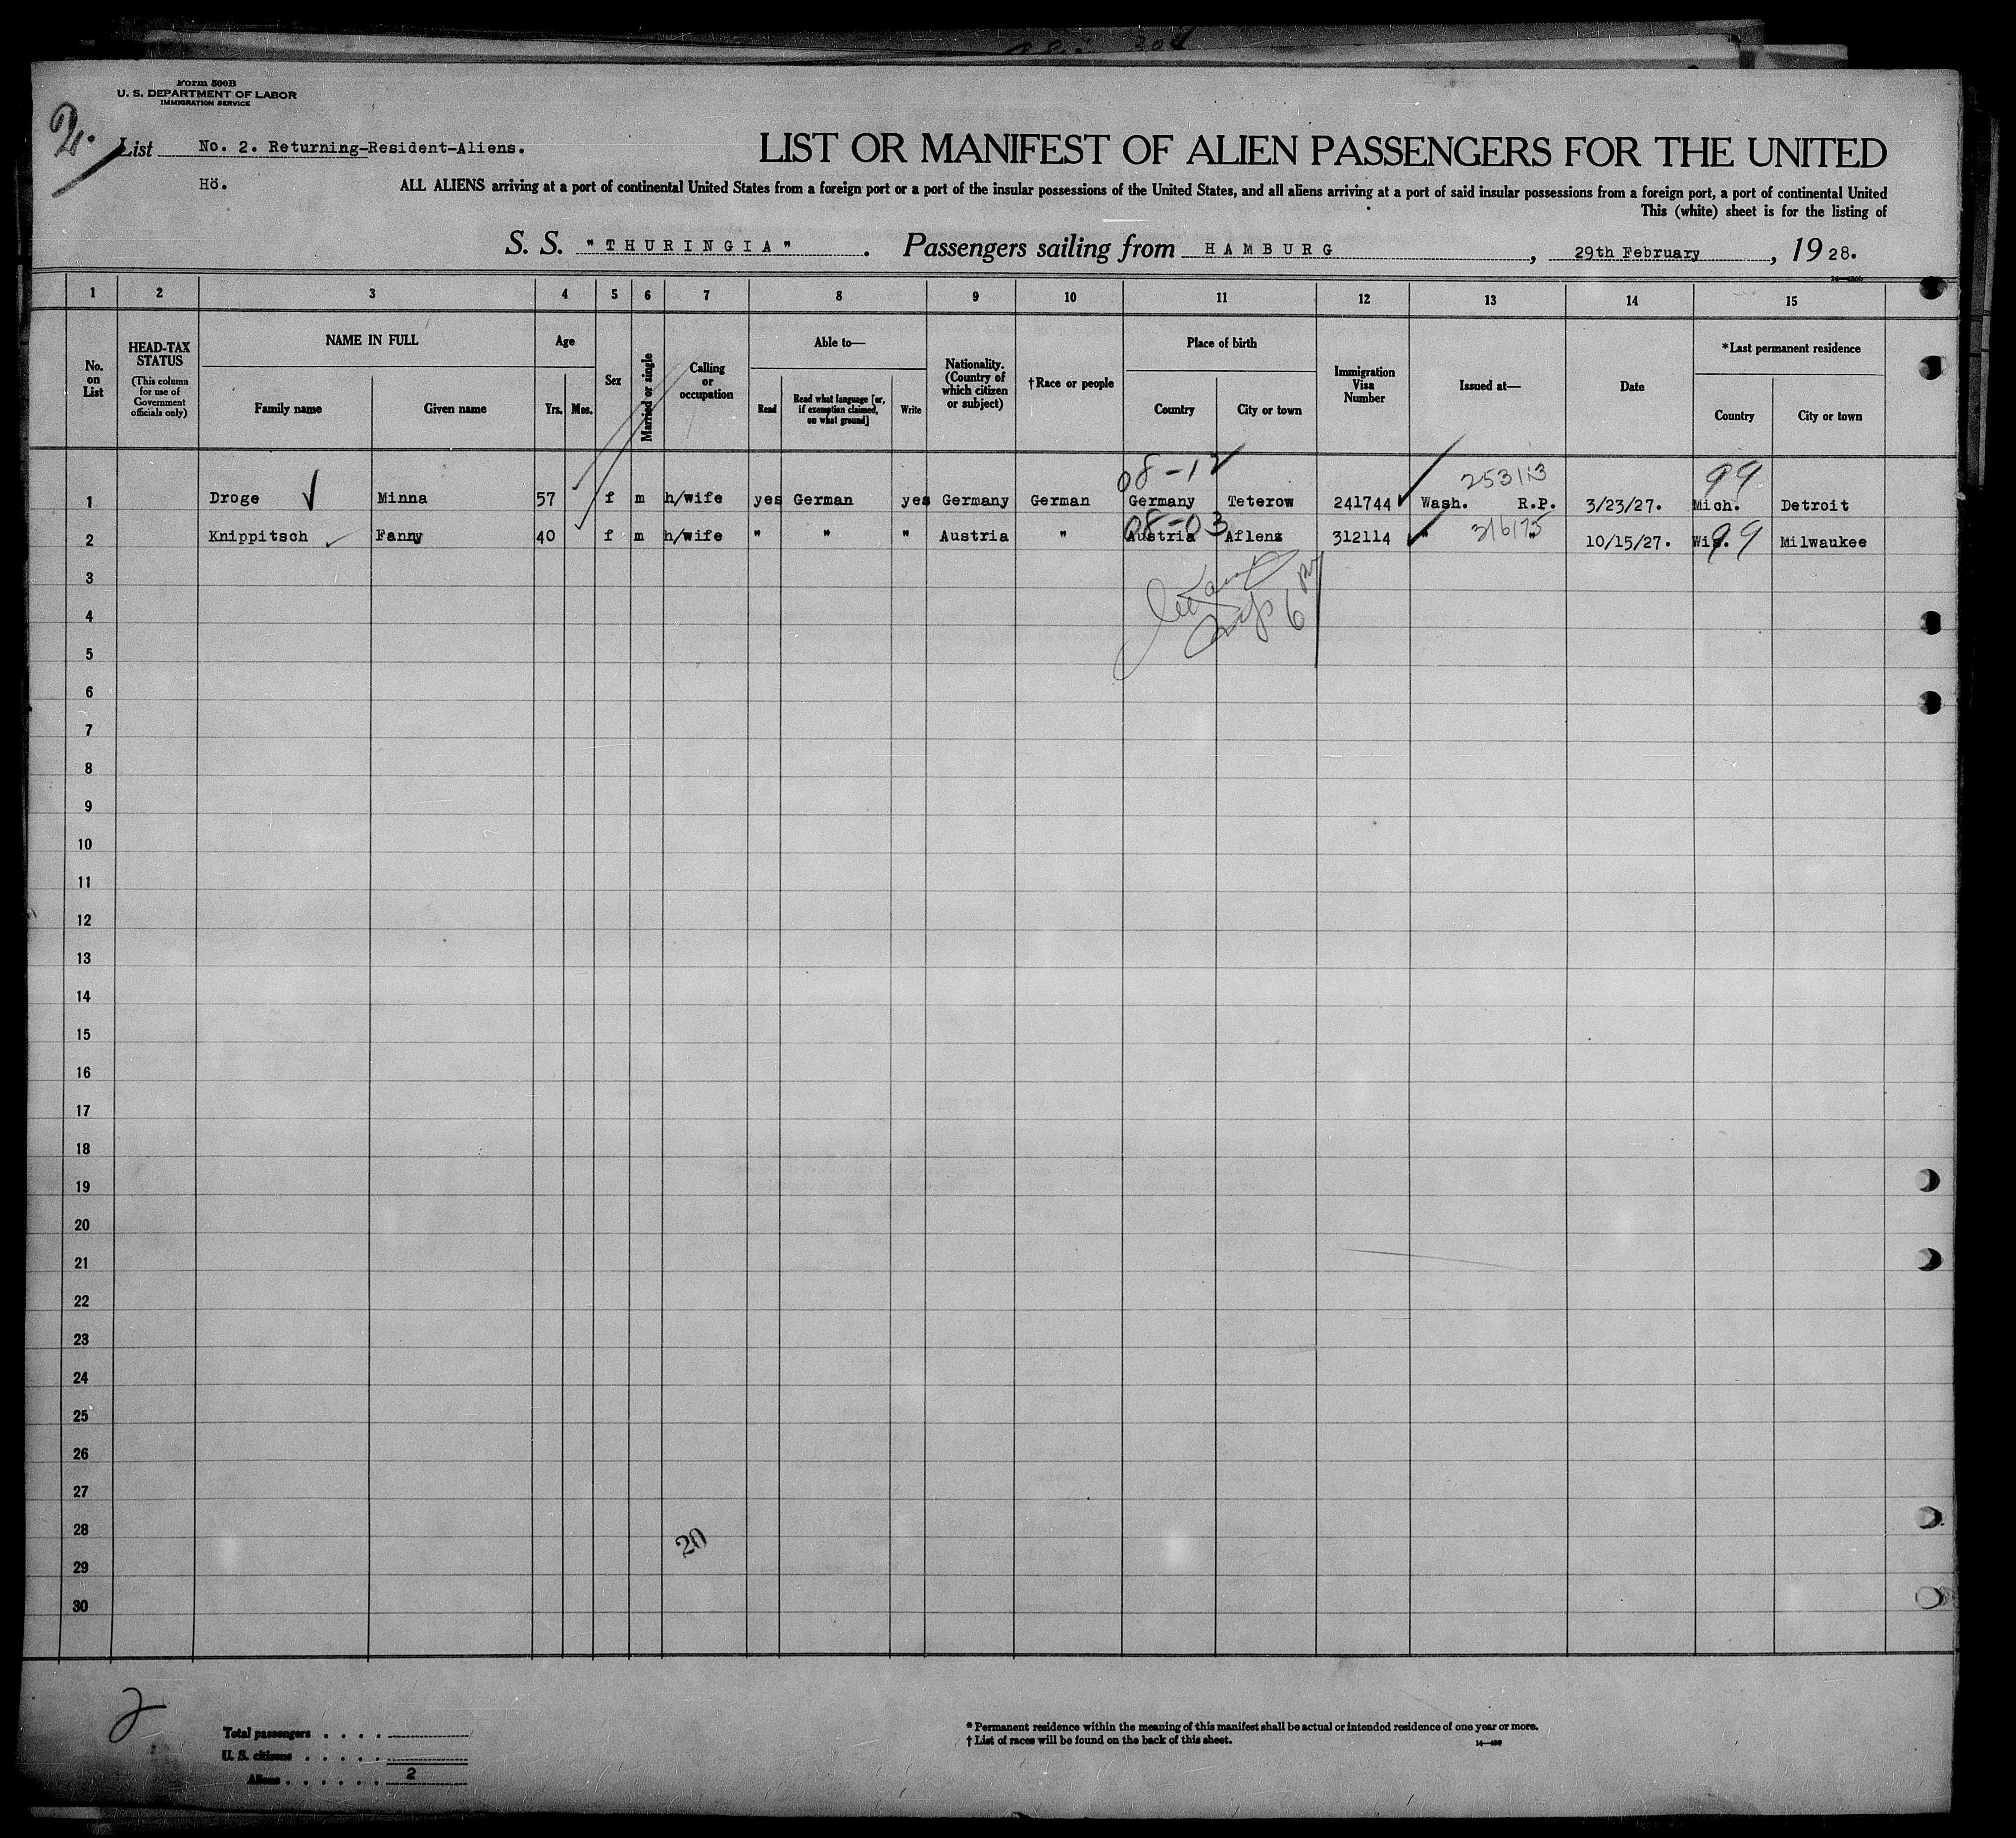 Form 500B
U. S. DEPARTMENT OF LABOR
IMMIGRATION SERVICE
2.
List No. 2. Returning-Resident-Aliens.
Hö.
LIST OR MANIFEST OF ALIEN PASSENGERS FOR THE UNITED
ALL ALIENS arriving at a port of continental United States from a foreign port or a port of the insular possessions of the United States, and all aliens arriving at a port of said insular possessions from a foreign port, a port of continental United
This (white) sheet is for the listing of
S. S. "THURINGIA". Passengers sailing from HAMBURG, 29th February, 1928.
1 2 3 4 5 6 7 8 9 10 11 12 13 14 15
No. on List
HEAD-TAX STATUS
(This column for use of Government officials only)
NAME IN FULL
Family name Given name
Age
Yrs. Mos.
Sex
Married or single
Calling or occupation
Able to—
Read
Read what language [or, if exemption claimed, on what ground]
Write
Nationality. (Country of which citizen or subject)
†Race or people
Place of birth
Country City or town
Immigration Visa Number
Issued at—
Date
*Last permanent residence
Country City or town
08-12 253113 99
1 Droge Minna 57 f m h/wife yes German yes Germany German Germany Teterow 241744 Wash. R.P. 3/23/27. Mich. Detroit
08-03 316175 99
2 Knippitsch Fanny 40 f m h/wife " " " Austria " Austria Aflenz 312114 " " 10/15/27. Wis. Milwaukee
3
4
5
6
7
8
9
10
11
12
13
14
15
16
17
18
19
20
21
22
23
24
25
26
27
28
20
29
30
2
Total passengers . . . .
U. S. citizens . . . . .
Aliens . . . . . . 2
* Permanent residence within the meaning of this manifest shall be actual or intended residence of one year or more.
† List of races will be found on the back of this sheet.